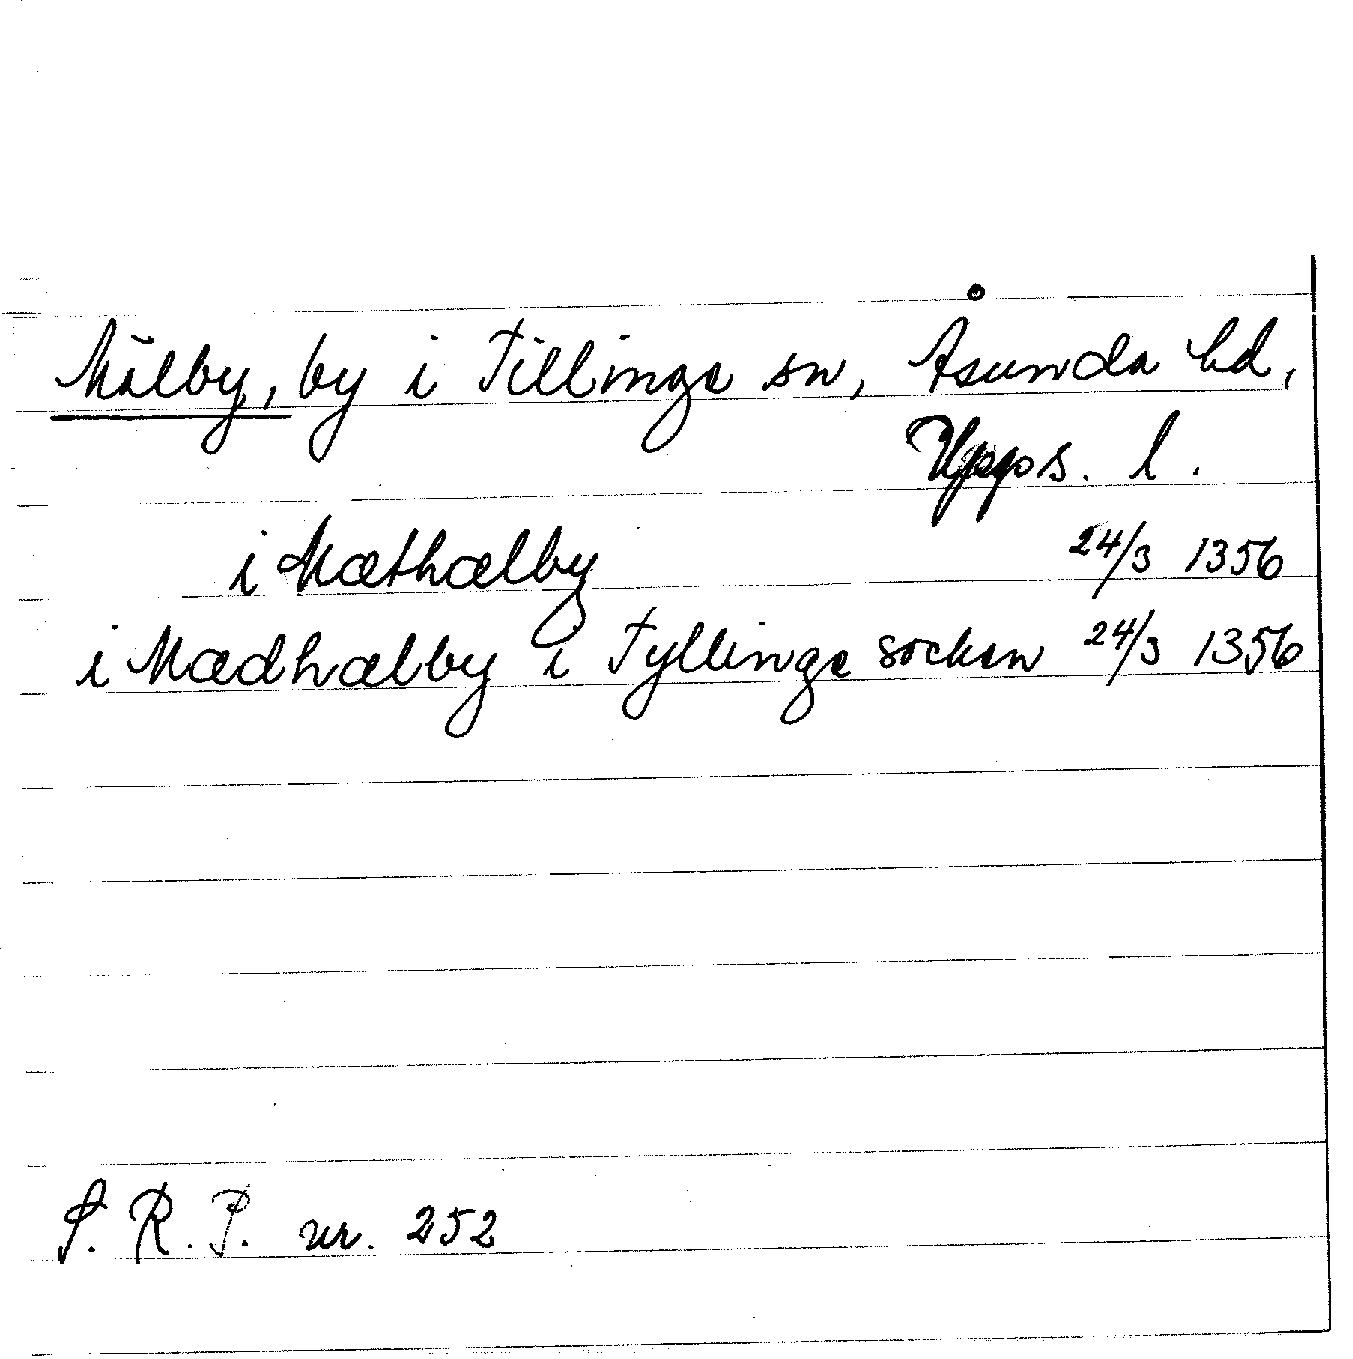 Mälby, by i Tillinge sn, Åsunda hd,
Upps. l.
i Mæthælby 24/3 1356
i Mædhælby i Tyllinge socken 24/3 1356
S. R. P. nr. 252